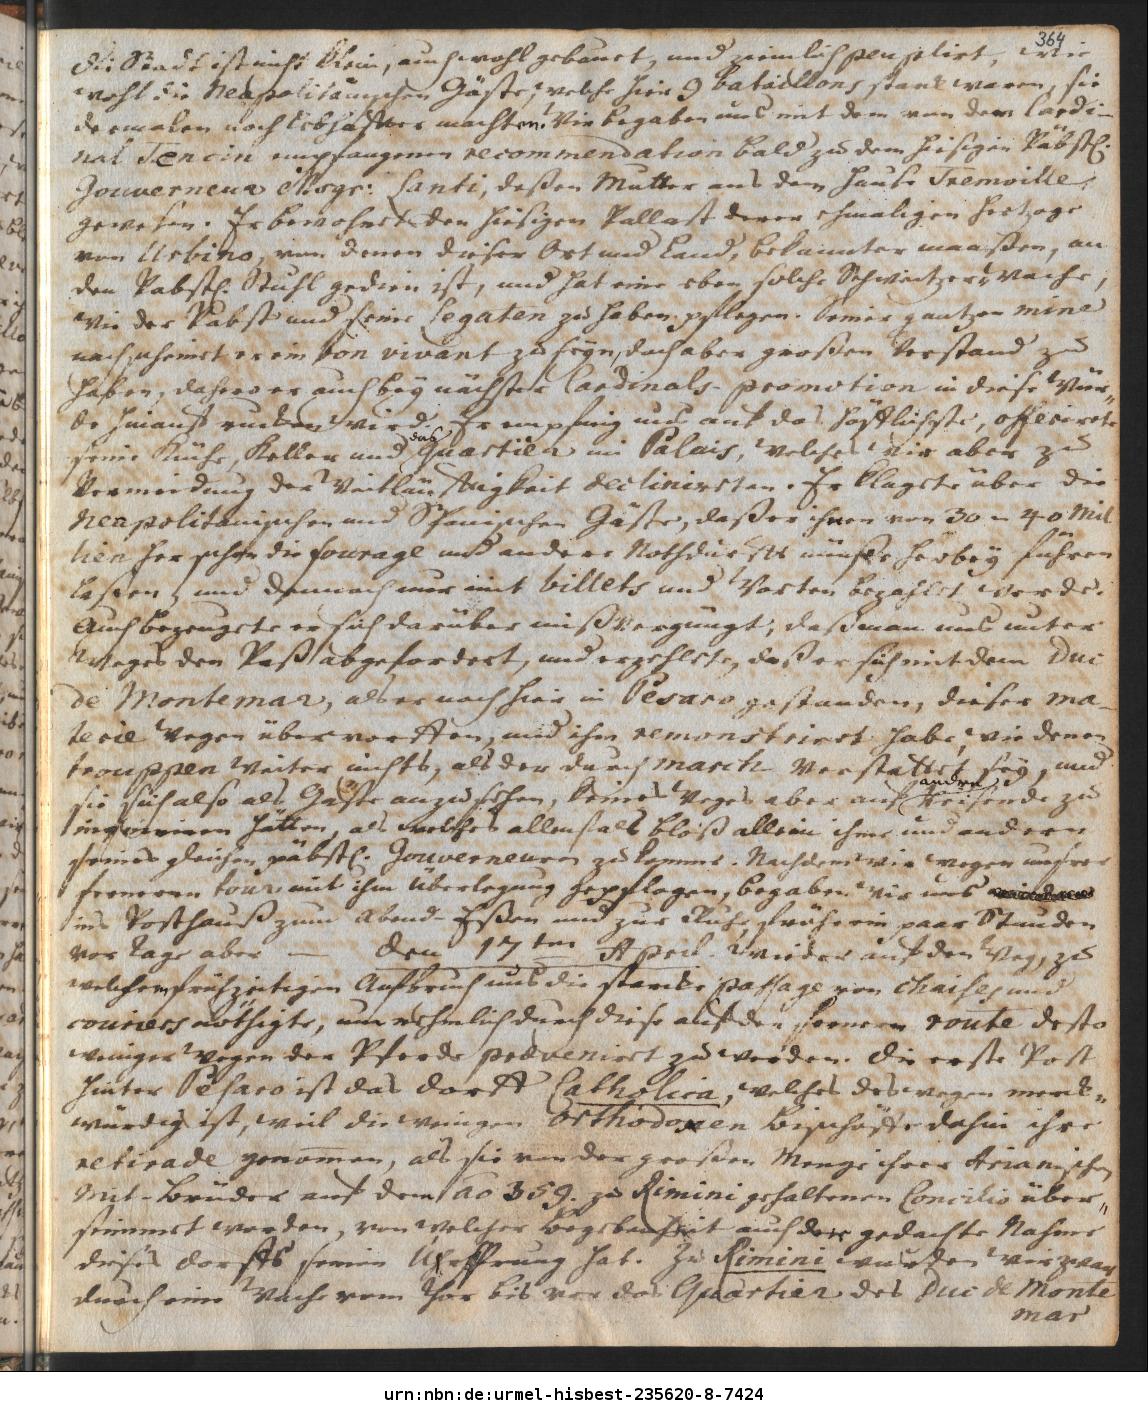 364
die Stadt ist nicht klein, auch wohl gebauet, und ziemlich peuplirt, wie
wohl die Neapolitanischen Gäste, welche hier 9 bataillons starck waren, sie
dermalen noch lebhaffter machten. Wir begaben uns mit dem von dem Cardi-
nal Tencin empfangenen recommendation bald zu dem hiesigen Päbstl.
Gouverneur Msgr: Lanti, deßen Mutter aus dem Hause Tremoille
gewesen. Er bewohnet den hiesigen Pallast derer ehmaligen Hertzoge
von Urbino, von denen dieser Ort und Land, bekannter maaßen, an
den Pabstl. Stuhl gedien ist, und hat eine eben solche Schweitzer Wache,
wie der Pabst und seine Legaten zu haben pflegen. Seiner gantzen mine
nach scheinet er ein bon vivant zu seyn, doch aber großen Verstand zu
haben, dahero er auch bey nächster Cardinals-promotion in diese Wür-
de hinauf rucken wird. Er empfing uns auf das höfflichste, offerirte
seine Küche, Keller und das Quartier im Palais, welches wir aber zu
Vermeidung der Weitläufftigkeit declinirten. Er klagete über die
Neapolitanischen und Spanischen Gäste, daß er ihnen von 30 - 40 Mil
lien her schon die fourage und andere Nothdurfft müste herbey führen
laßen, und dennoch nur mit billets und Worten bezahlet werde.
Auch bezeugete er sich darüber mißvergnügt, daß man uns unter
Weges den Paß abgefordert, und erzehlete, daß er sich mit dem Duc
de Montemar, als er noch hier in Pesaro gestanden, dieser ma-
terie wegen überworffen, und ihm remonstriret habe, wie denen
trouppen weiter nichts, als der durch march verstattet sey, und
sie sich also als Gäste anzusehen, keines Weges aber auf andre Reisende zu
inquiriren hätten, als welches allenfals bloß allein ihme und andern
seines gleichen päbstl. Gouverneurn zu komme. Nachdem wir wegen unsrer
fernern tour mit ihm Überlegung gepflogen, begaben wir uns
ins Posthauß zum Abend-Eßen und zur Ruhe, früh ein paar Stunden
vor Tage aber — den 17ten April. wieder auf den Weg, zu
welchem frühzeitigen Aufbruch uns die starcke passage von chaises und
couriers nöthigte, um nehmlich durch diese auf der fernern route desto
weniger wegen der Pferde præveniret zu werden. Die erste Post
hinter Pesaro ist das Dorff Catholica, welches deswegen merck-
würdig ist, weil die wenigen Orthodoxen Bischöffe dahin ihre
retirade genommen, als sie von der großen Menge ihrer Arianischen
Mit-Brüder auf dem ao 359. zu Rimini gehaltenen Concilio über-
stimmet worden, von welcher Begebenheit auch der gedachte Nahme
dieses Dorffs seinen Ursprung hat. Zu Rimini wurden wir zwar
durch eine Wache vom Thor bis vor das Quartier des Duc de Monte
mar
urn:nbn:de:urmel-hisbest-235620-8-7424